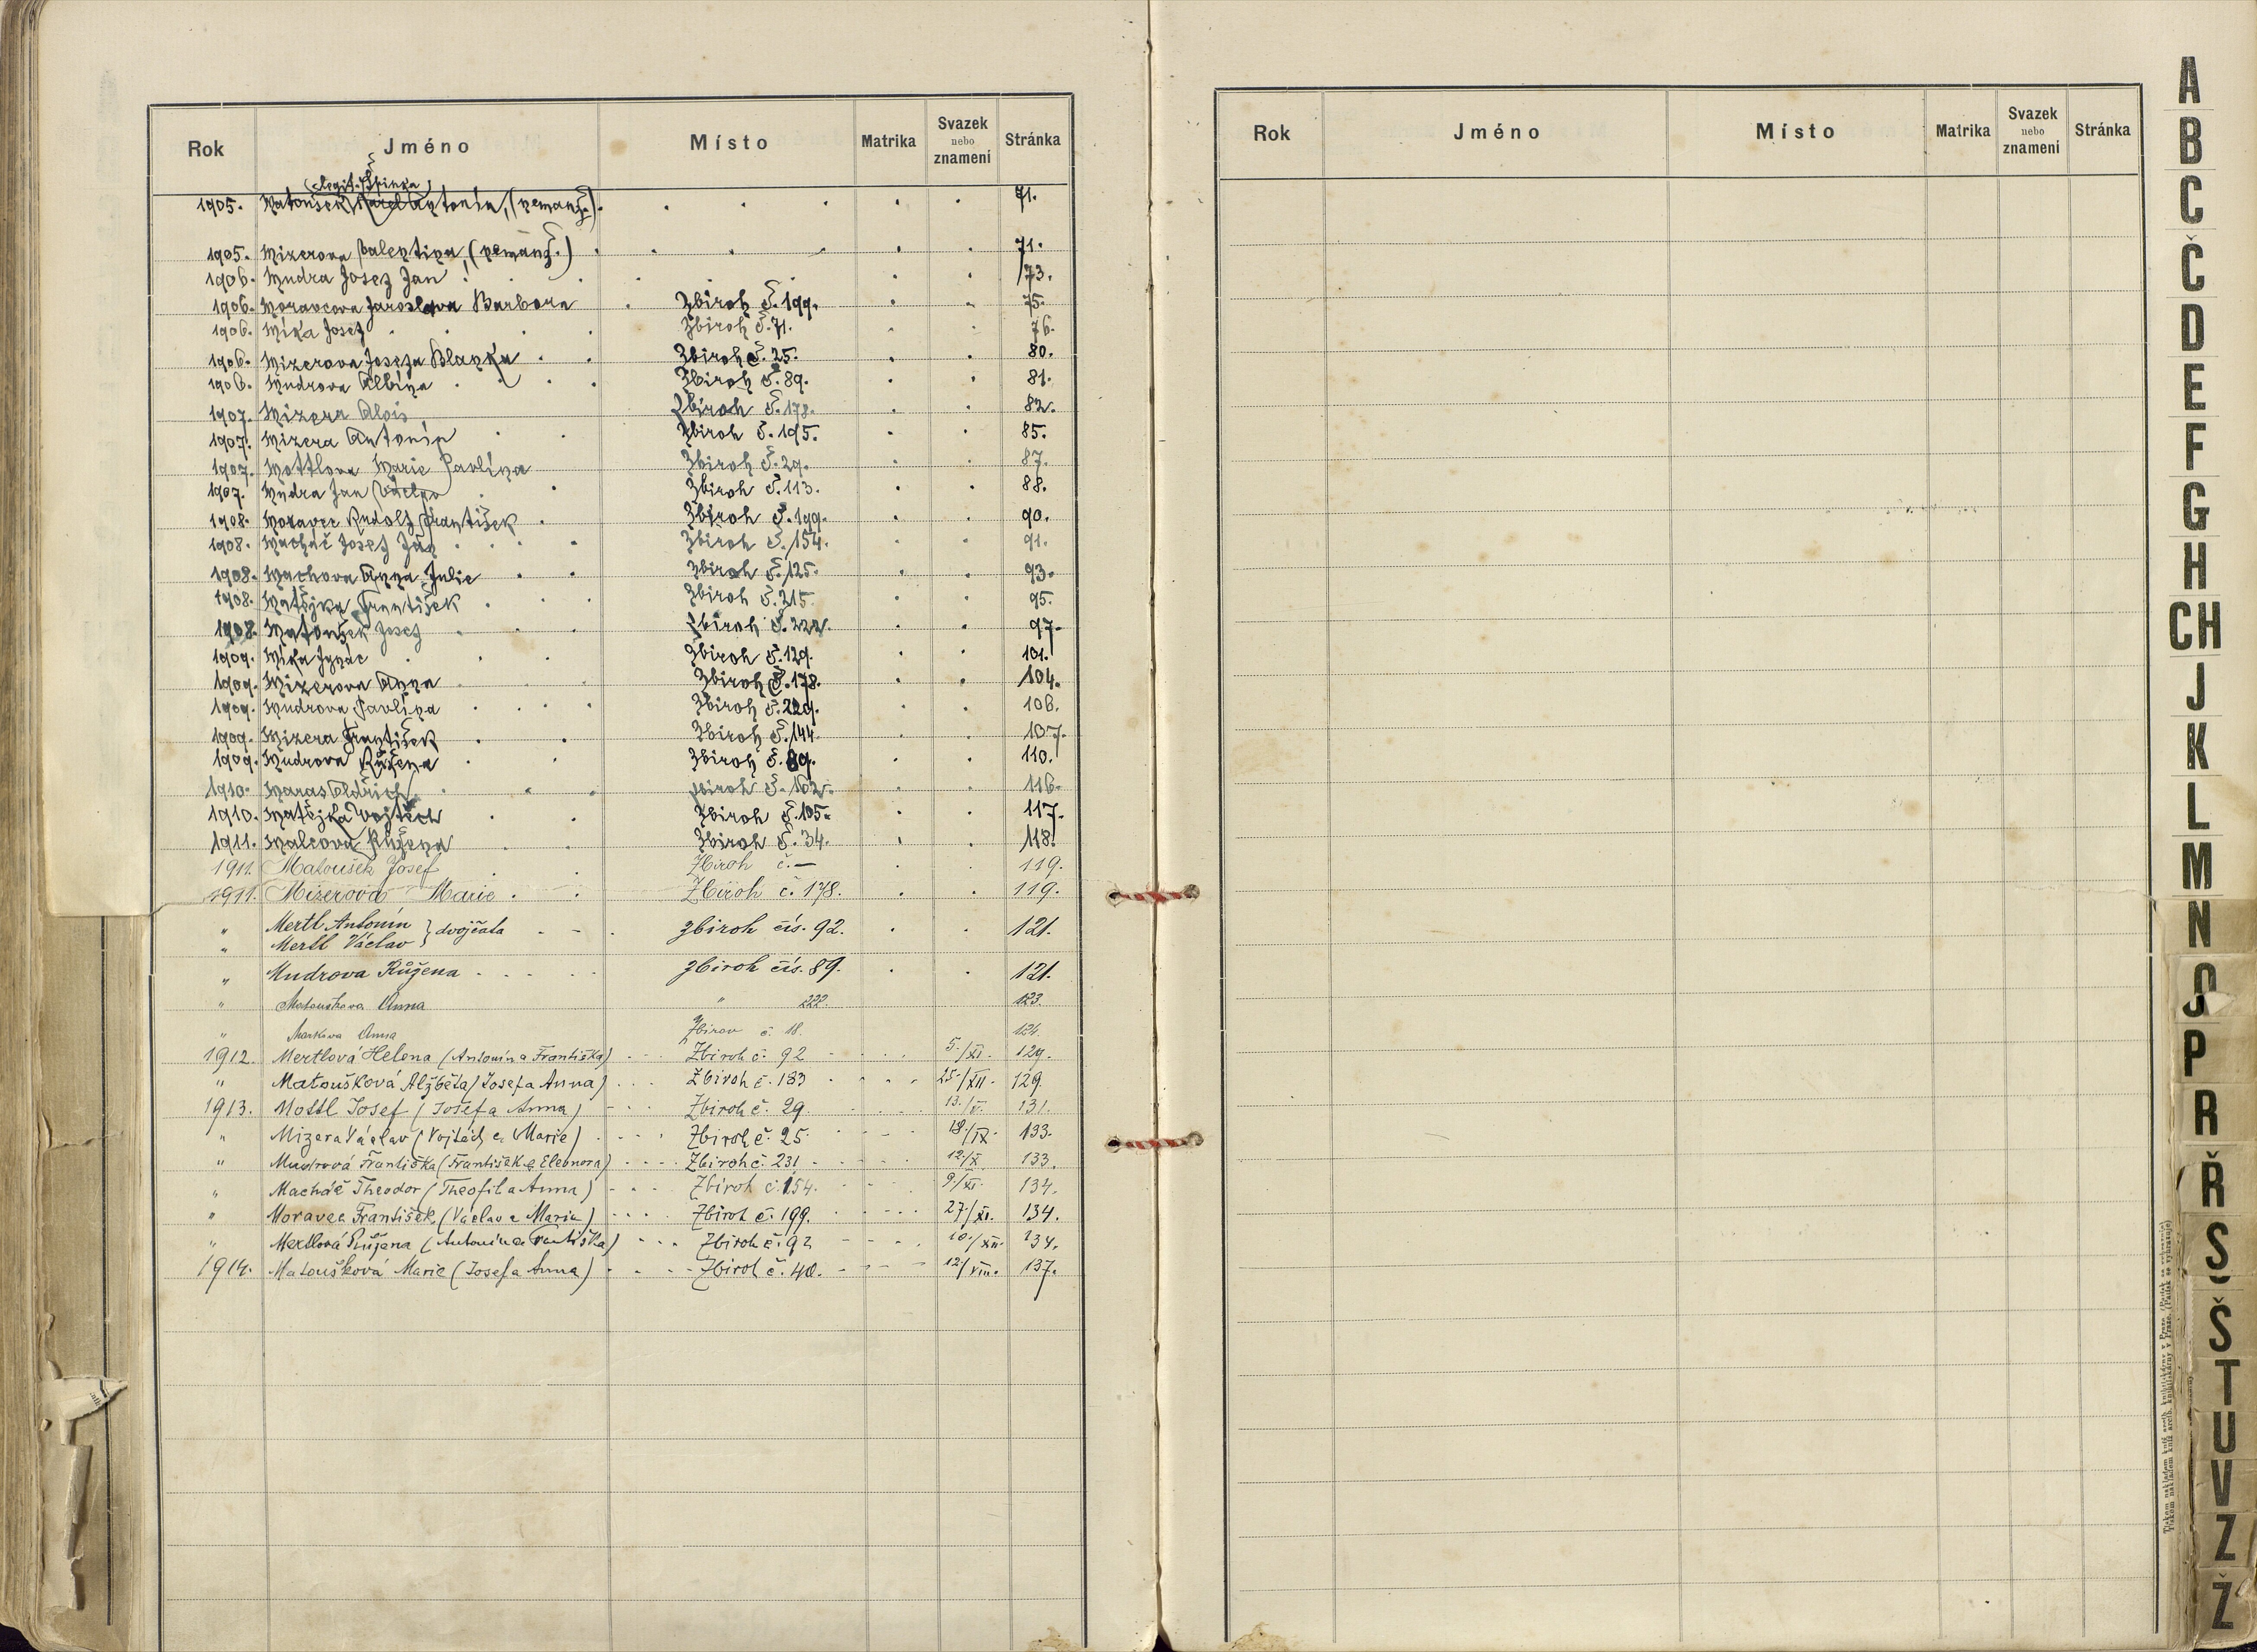 Rok Jméno Místo Matrika Svazek nebo znamení Stránka
(legit. Špinka)
1905. Matoušek Karel Antonín, (nemanž.) 71.
1905. Mizerova Valentina, (nemanž.) 71.
1906. Mudra Josef Jan 73.
1906. Moravcova Jaroslava Barbora Zbiroh č. 199. 75.
1906. Míka Josef Zbiroh č. 71. 76.
1906. Mizerova Josefa Blanka Zbiroh č. 25. 80.
1906. Mudrova Albína Zbiroh č. 89. 81.
1907. Mizera Alois Zbiroh č. 178. 82.
1907. Mizera Antonín Zbiroh č. 195. 85.
1907. Mottlova Marie Pavlína Zbiroh č. 29. 87.
1907. Mudra Jan Václav Zbiroh č. 113. 88.
1908. Moravec Rudolf František Zbiroh č. 199. 90.
1908. Macháč Josef Ján Zbiroh č. 154. 91.
1908. Machova Anna Julie Zbiroh č. 125. 93.
1908. Matějka František Zbiroh č. 215. 95.
1908. Matoušek Josef Zbiroh č. 222. 97.
1909. Míka Ignác Zbiroh č. 129. 101.
1909. Mizerova Anna Zbiroh č. 178. 104.
1909. Mudrova Pavlína Zbiroh č. 229. 106.
1909. Mizera František Zbiroh č. 144. 107.
1909. Mudrova Růžena Zbiroh č. 89. 110.
1910. Maras Oldřich Zbiroh č. 162. 116.
1910. Matějka Vojtěch Zbiroh č. 105. 117.
1911. Malcova Růžena Zbiroh č. 34. 118.
1911. Matoušek Josef Zbiroh č. — 119.
1911. Mizerová Marie Zbiroh č. 178. 119.
" Mertl Antonín } dvojčata zbiroh čís. 92. 121.
" Mertl Václav
" Mudrova Růžena zbiroh čís. 89. 121.
" Matouskova Anna " 222. 123.
" Markova Anna Zbirov č. 18. 124.
1912. Mertlová Helena (Antonín a Františka) Zbiroh č. 92 5./XI. 129.
" Matoušková Alžběta (Josef a Anna) Zbiroh č. 183 25./XII. 129.
1913. Mottl Josef (Josef a Anna) Zbiroh č. 29 13./V. 131.
" Mizera Václav (Vojtěch a Marie) Zbiroh č. 25. 18./IX. 133.
" Mudrová Františka (František a Eleonora) Zbiroh č. 231 12./X. 133.
" Macháč Theodor (Theofil a Anna) Zbiroh č. 154. 9/XI. 134.
" Moravec František (Václav a Marie) Zbiroh č. 199. 27/XI. 134.
" Mertlová Růžena (Antonín a Františka) Zbiroh č. 92 10./XII. 134.
1914. Matoušková Marie (Josef a Anna) Zbiroh č. 40. 12/VIII. 137.
Rok Jméno Místo Matrika Svazek nebo znamení Stránka
A
B
C
Č
D
E
F
G
H
CH
J
K
L
M
N
O
P
R
Ř
S
Š
T
U
V
Z
Ž